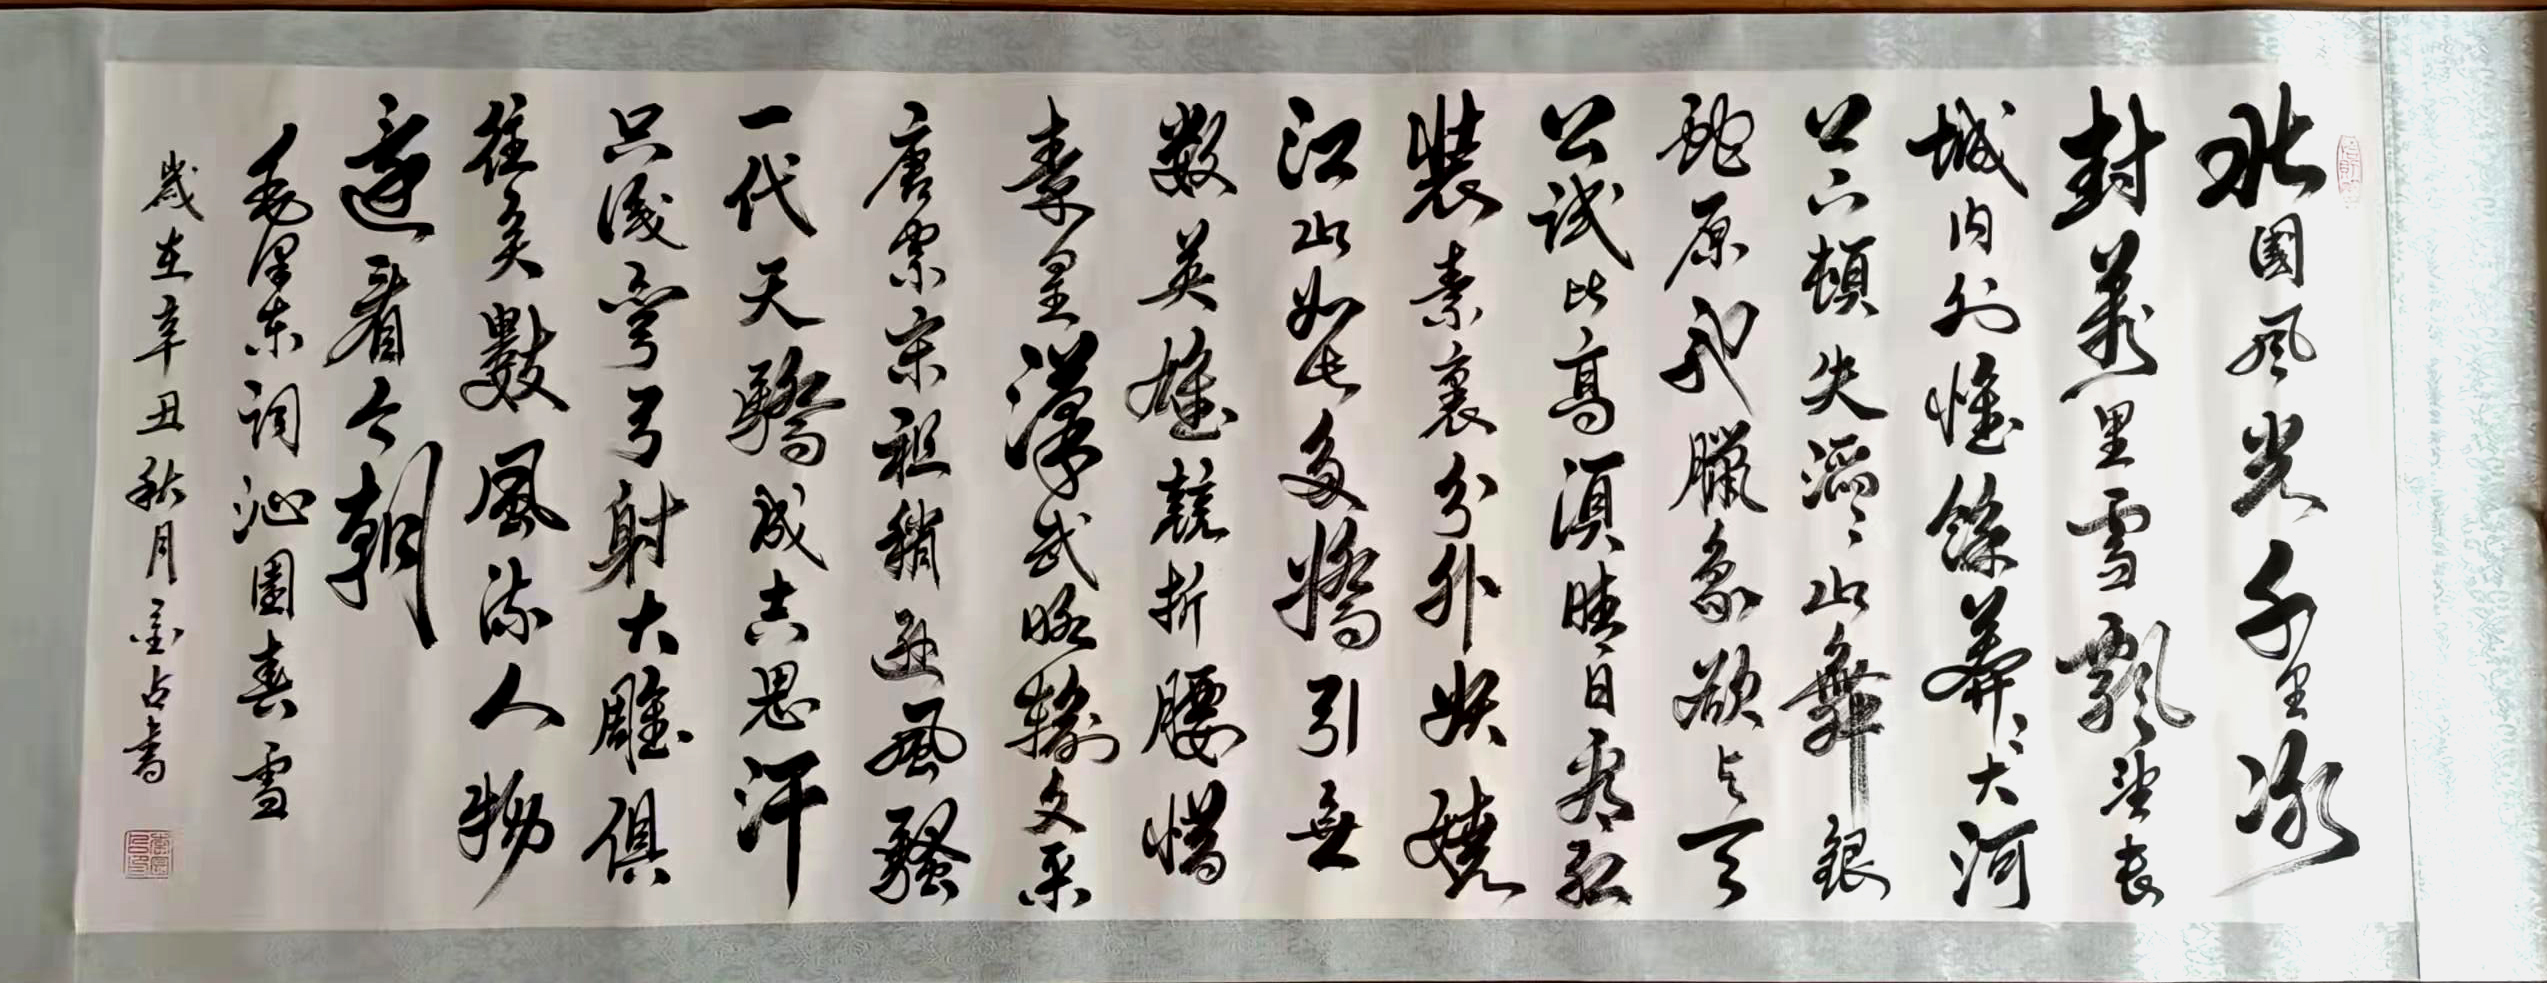 北國風光千里冰
封萬里雪飄望長
城内外惟餘莽〻大河
上下頓失滔〻山舞銀
蛇原驰臘象欲与天
公試比高須晴日看红
裝素裹分外妖嬈
江山如此多嬌引無
数英雄競折腰惜
秦皇漢武略输文采
唐宗宋祖稍逊風騷
一代天驕成吉思汗
只識彎弓射大雕俱
往矣數風流人物
還看今朝
毛澤东词沁園春雪
歲在辛丑秋月金占書